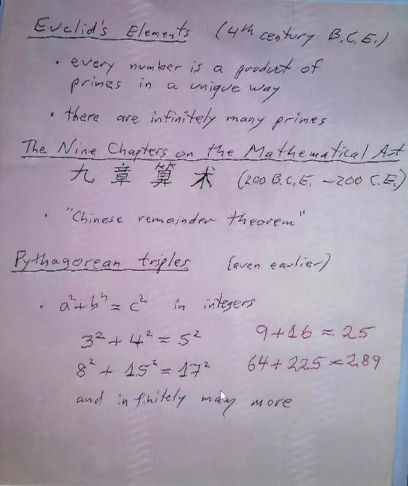 Euclid's Elements (4th century B.C.E.)
• every number is a product of
primes in a unique way
• there are infinitely many primes
The Nine Chapters on the Mathematical Art
九章算术 (200 B.C.E. – 200 C.E.)
• "Chinese remainder theorem"
Pythagorean triples (even earlier)
• a²+b²=c² in integers
3²+4²=5² 9+16=25
8²+15²=17² 64+225=289
and infinitely many more